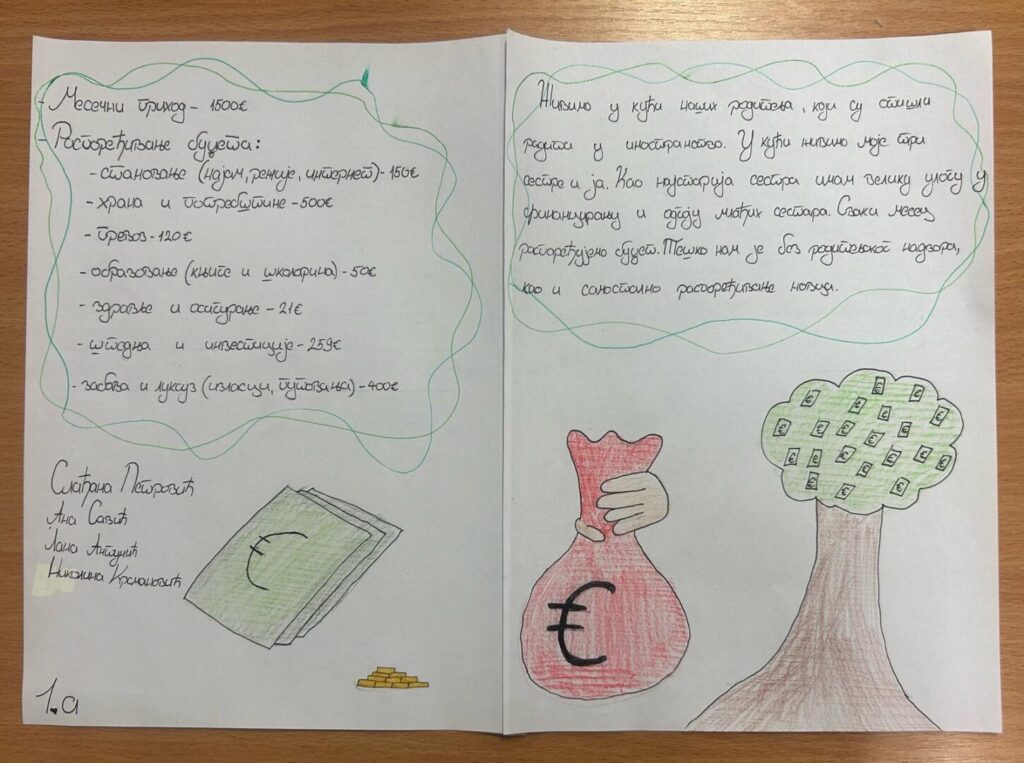 - Месечни приход - 1500€
- Распоређивање буџета:
- становање (најам, режије, интернет) - 150€
- храна и потребштине - 500€
- превоз - 120€
- образовање (књиге и школарина) - 50€
- здравље и осигурање - 21€
- штедња и инвестиције - 259€
- забава и луксуз (изласци, путовања) - 400€
Слађана Петровић
Ана Савић
Лана Антунић
Николина Крмановић
1.а
Живимо у кући наших родитеља, који су отишли
радити у иностранство. У кући живимо моје три
сестре и ја. Као најстарија сестра имам велику улогу у
финанцирању и одгоју млађих сестара. Сваки месец
распоређујемо буџет. Тешко нам је без родитељског надзора,
као и самостално распоређивање новца.
€
€
€